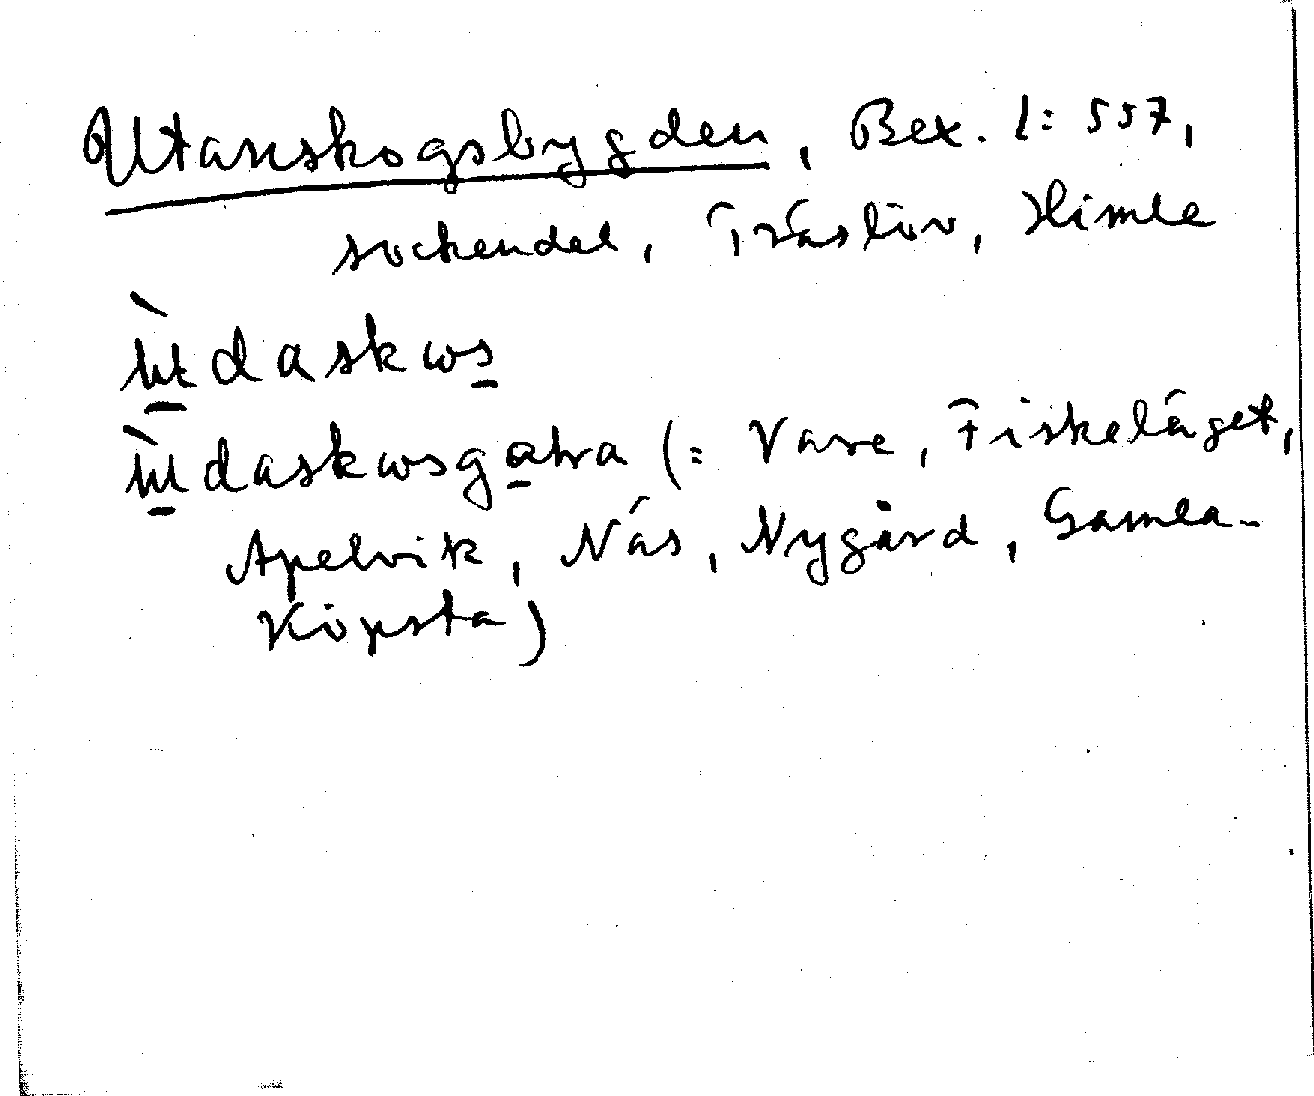 Utanskogsbygden, Bex. 1: 557,
sockendel, Träslöv, Himle
ùdaskws
ùdaskwsgabra (: Vare, Fiskeläget,
Apelvik, Näs, Nygård, Gamla-
Köpsta)